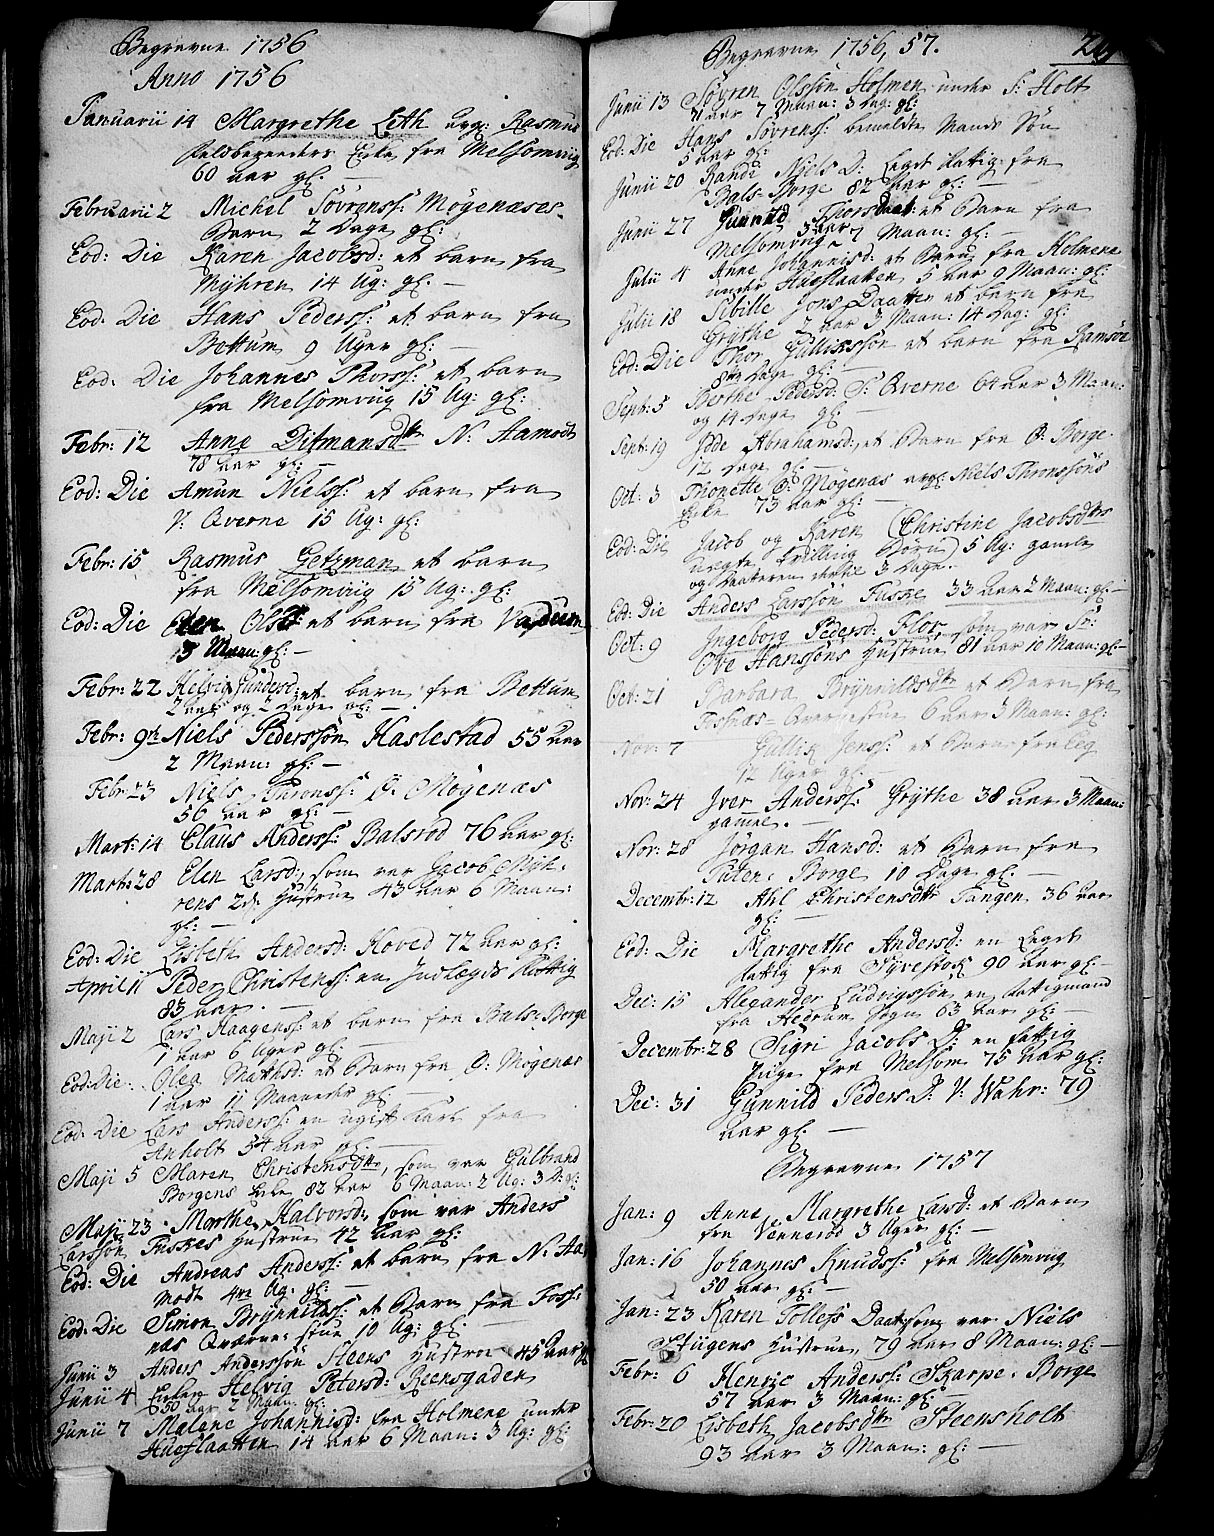 Begravne 1756
Anno 1756
Januarii 14 Margrethe Leth Rasmus
Feldbereeders Enke fra Melsomviig
60 aar gl: —
Februarii 2 Michel Sövrenss: Mögenæses
Barn 2 Dage gl:
Eod: Die Karen Jacobsd: et barn fra
Myhren 14 Ug: gl: —
Eod: Die Hans Pederss: et barn fra
Bettum 9 Uger gl: —
Eod: Die Johannes Thorss: et barn
fra Melsomviig 15 Ug: gl:
Febr: 12 Anne Ditmansdtt N: Aamodt
78 aar gl: —
Eod: Die Amun Nielss: et barn fra
V: Qverne 15 Ug: gl:
Febr: 15 Rasmus Getzman et barn
fra Melsomviig 15 Ug: gl:
Eod: Die et barn fra
Maan: gl: —
Febr: 22 Helvig et barn fra Bettum
2 aar og 2 Dage gl: —
Febr: 9 Niels Pederssön Haslestad 55 aar
2 Maan: gl: —
Febr: 23 Niels Thronss: Ö: Mögenæs
56 aar gl: —
Mart: 14 Claus Anderss: Balsröd 76 aar gl:
Mart: 28 Elen Larsd: som var Jacob Myh-
rens 2de Hustrue 43 aar 6 Maan:
gl: —
Eod: Die Lisbeth Andersd: Hoved 72 aar gl:
April 11 Peder Christenss: en Indlægds Fattig
83 aar. —
Maji 2 Lars Haagenss: et barn fra Bals-Borge
1 aar 6 Uger gl: —
Eod: Die: Olea Mattisd: et Barn fra Ö: Mögenæs
1 aar 11 Maaneder gl: —
Eod: Die Lars Anderss: en ugift Karl fra
Anholt 54 aar gl: —
Maji 5 Maren Christensdtt, som var Gulbrand
Borgens Enke 82 aar 6 Maan: 2 Ug: 3 D: gl:
Maji 23 Marthe Halvorsd: som var Anders
Larssön Fuskes Hustrue 42 aar gl:
Eod: Die Andreas Anderss: et barn fra N: Aa
modt 4re Ug: gl: —
Eod: Die Simon Brynnildss: et Barn fra Foss-
næs Qværne-stue 10 Ug: gl: —
Junii 3 Anders Anderssön Steens Hustroe 45 Aar gl
Junii 4 Enken Helvig Petersd: Reensgaden
50 aar 2 Maan: gl:
Junii 7 Malene Johannisd: fra Holmene under
Hueslaatten 14 aar 6 Maan: 3 Ug: gl:
Begravne 1756, 57.
Junii 13 Sövren Olssön Holmen under S: Holt
71 aar 7 Maan: 3 Dag: gl:
Eod: Die Hans Sövrenss: bemeldte Mands Sön
5 aar gl:
Junii 20 Randi Niels D: Legds fattig fra
Bals-Borge 82 aar gl: —
Junii 27 Gunnild et Barn fra
Melsomviig 3 aar 7 Maan: gl: —
Julii 4 Anne Johannisd: et Barn fra Holmene
under Hueslaatten 5 aar 9 Maan: gl:
Julii 18 Sibille Jons Daatter et barn fra
Grythe 2 aar 3 Maan: 14 Dag: gl:
Eod: Die Thor Gullikssön et barn fra Ramsöe
8te Dage gl: —
Sept: 5 Berthe Pedersd: S: Qverne 64 aar 3 Maan:
og 14 Dage gl: —
Sept: 19 Idde Abrahamsd: et Barn fra Ö: Borge
12 Dage gl: —
Oct: 3 Thonette Ö: Mögenæs Niels Thronssöns
Enke 73 aar gl: —
Eod: Die Jacob og Karen Christine Jacobsdtrs
uægte Tvilling Börn 5 Ug: gamle
og Daateren 3 Dage.
Eod: Die Anders Larssön Fuske 33 aar 2 Maan: gl: —
Oct: 9 Ingeborg Pedersd: Flor som var Sr:
Ove Hanssöns Hustrue 81 aar 10 Maan: gl: —
Oct: 21 Barbara Brynnildsdtr et Barn fra
Fossnæs-Qværnestue 6 aar 3 Maan: gl:
Nov: 7 Gullik Jenss: et Barn fra Eeg
12 Uger gl: —
Nov: 24 Iver Anderss: Grythe 38 aar 3 Maan:
gamml. —
Nov: 28 Jörgan Hansd: et Barn fra
Borge 10 Dage gl: —
Decembr: 12 Ahl Christensdtr Tangen 36 aar
gl: —
Eod: Die Margrethe Andersd: en Legds
fattig fra Syvestok 90 aar gl: —
Dec: 15 Alexander Ludvigssön en fattigmand
fra Hedrum Sogn 63 aar gl: —
Decembr: 28 Sigri Jacobs D: en fattig
Pige fra Melsom 75 aar gl:
Dec: 31 Gunnild Peders D: V: Wahr: 79
aar gl: —
Begravne 1757
Jan: 9 Anne Margrethe Larsd: et Barn
fra Vennerød 3 Uger gl: —
Jan: 16 Johannes Knudss: fra Melsomvug
50 aar gl: —
Jan: 23 Karen Tollefs Daatter, som var Niels
Stugens Hustrue 79 aar 8 Maan: gl: —
Febr: 6 Henric Anderss: Skarpe-Borge
57 aar 3 Maan: gl: —
Febr: 20 Lisbeth Jacobsdtr Steensholt
93 aar 3 Maan: gl: —